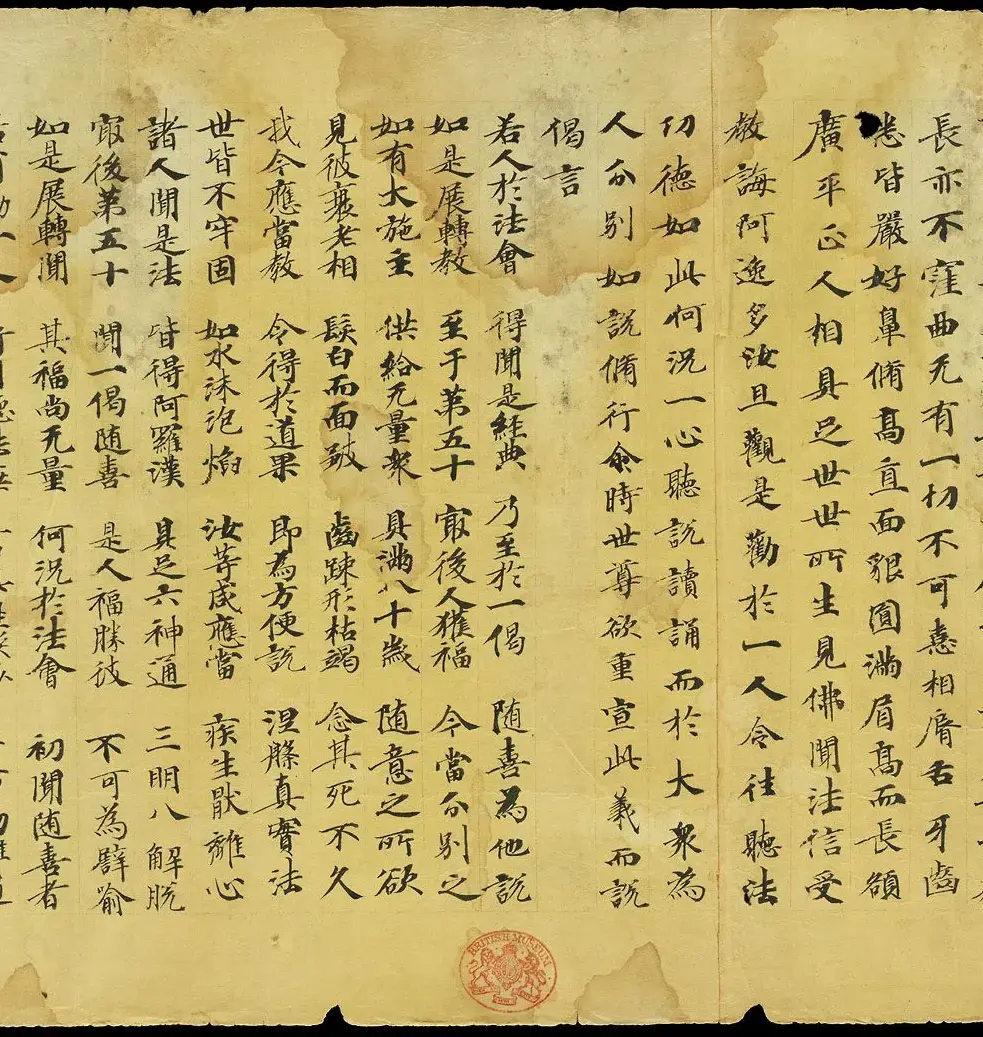 長亦不窪曲无有一切不可憙相脣舌牙齒
悉皆嚴好鼻脩髙直面貌圓滿眉髙而長額
廣平正人相具足世世所生見佛聞法信受
教誨阿逸多汝且觀是勸於一人令往聽法
功德如此何況一心聽說讀誦而於大衆為
人分別如說脩行尒時世尊欲重宣此義而說
偈言
若人於法會 得聞是經典 乃至於一偈 随喜為他說
如是展轉教 至于第五十 冣後人獲福 今當分別之
如有大施主 供給无量衆 具滿八十歲 随意之所欲
見彼衰老相 髮白而面皺 齒踈形枯竭 念其死不久
我今應當教 令得於道果 即為方便說 涅槃真實法
世皆不牢固 如水沫泡焰 汝等咸應當 疾生猒離心
諸人聞是法 皆得阿羅漢 具足六神通 三明八解脫
冣後第五十 聞一偈随喜 是人福勝彼 不可為譬喻
如是展轉聞 其福尚无量 何況於法會 初聞随喜者
BRITISH MUSEUM